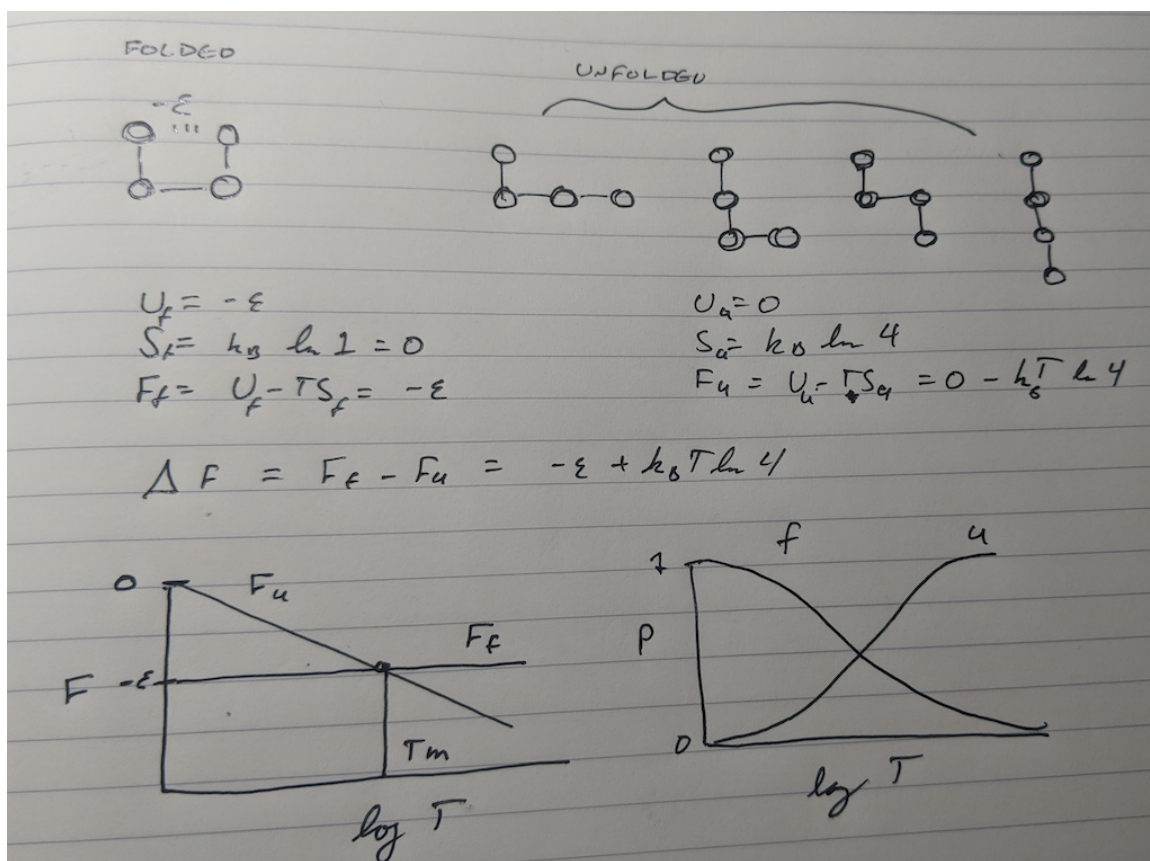 FOLDED
UNFOLDED
-ε
U_f = -ε
S_f = k_B ln 1 = 0
F_f = U_f - TS_f = -ε
U_u = 0
S_u = k_B ln 4
F_u = U_u - TS_u = 0 - k_B T ln 4
Δ F = F_f - F_u = -ε + k_B T ln 4
0
F_u
F_f
F
-ε
Tm
log T
f
u
1
P
0
log T